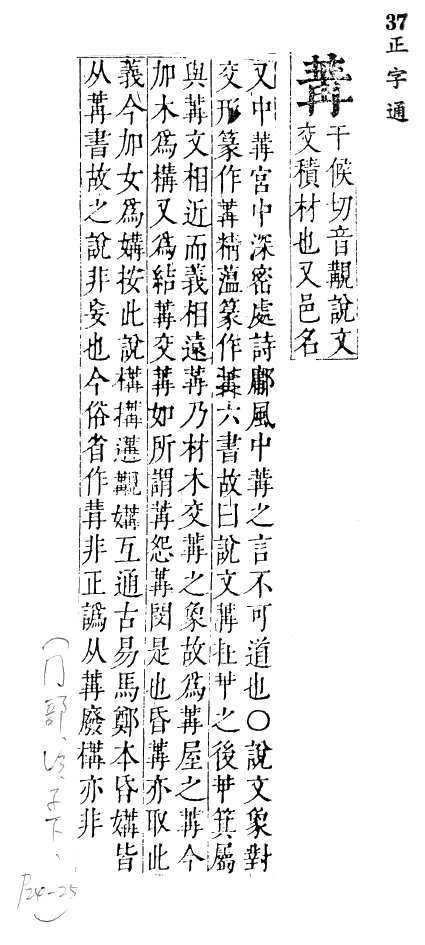 37正字通
冓
干候切音覯說文
交積材也又邑名
又中冓宮中深密處詩鄘風中冓之言不可道也〇說文象對
交形篆作冓精蕰篆作冓六書故曰說文冓在𠀎之後𠀎箕屬
與冓文相近而義相遠冓乃材木交冓之象故爲冓屋之冓今
加木爲構又爲結冓交冓如所謂冓怨冓閔是也昏冓亦取此
義今加女爲媾按此說構搆遘覯媾互通古易馬鄭本昏媾皆
从冓書故之說非妄也今俗省作冓非正譌从冓廢構亦非
(冂部、
下、
P24-25)